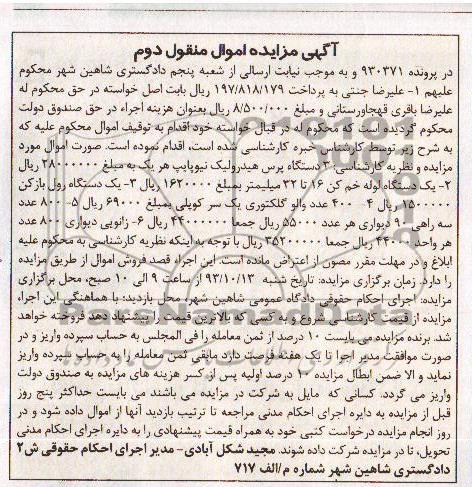 آگهی مزایده اموال منقول دوم
در پرونده ۹۳۰۳۷۱ و به موجب نیابت ارسالی از شعبه پنجم دادگستری شاهین شهر محکوم
علیهم ۱- علیرضا جنتی به پرداخت ۱۹۷/۸۱۸/۱۷۹ ریال بابت اصل خواسته در حق محکوم له
علیرضا باقری قهجاورستانی و مبلغ ۸/۵۰۰/۰۰۰ ریال بعنوان هزینه اجراء در حق صندوق دولت
محکوم گردیده است که محکوم له در قبال خواسته خود اقدام به توقیف اموال محکوم علیه که
به شرح زیر توسط کارشناس خبره کارشناسی شده است، اقدام نموده است. صورت اموال مورد
مزایده و نظریه کارشناسی ۳ دستگاه پرس هیدرولیک نیوپایپ هر یک به مبلغ ۲۸۰۰۰۰۰۰ ریال
۲- یک دستگاه لوله خم کن ۱۶ تا ۳۲ میلیمتر بمبلغ ۱۶۲۰۰۰۰ ریال ۳- یک دستگاه رول بازکن
۱۵۰۰۰۰۰ ریال ۴- ۴۰۰ عدد والو گلکتوری یک سر کوپلی بمبلغ ۶۹۰۰۰ ریال ۵- ۸۰۰ عدد
سه راهی ۹۰ دیواری هر عدد ۵۵۰۰۰ ریال جمعا ۴۴۰۰۰۰۰۰ ریال ۶- زانویی دیواری ۸۰۰ عدد
هر واحد ۴۴۰۰۰ ریال جمعا ۳۵۲۰۰۰۰۰ ریال با توجه به اینکه نظریه کارشناسی به محکوم علیه
ابلاغ و در مهلت مقرر مصون از اعتراض مانده است. این اجراء قصد فروش اموال از طریق مزایده
را دارد. زمان برگزاری مزایده: تاریخ شنبه ۹۳/۱۰/۱۳ از ساعت ۹ الی ۱۰ صبح، محل برگزاری
مزایده: اجرای احکام حقوقی دادگاه عمومی شاهین شهر، محل بازدید: با هماهنگی این اجراء،
مزایده از قیمت کارشناسی شروع و به کسی که بالاترین قیمت را پیشنهاد دهد فروخته خواهد
شد. برنده مزایده می بایست ۱۰ درصد از ثمن معامله را فی المجلس به حساب سپرده واریز و در
صورت موافقت مدیر اجرا تا یک هفته فرصت دارد مابقی ثمن معامله را به حساب سپرده واریز
نماید و الا ضمن ابطال مزایده ۱۰ درصد اولیه پس از کسر هزینه های مزایده به صندوق دولت
واریز می گردد. کسانی که مایل به شرکت در مزایده می باشند می بایست حداکثر پنج روز
قبل از مزایده به دایره اجرای احکام مدنی مراجعه تا ترتیب بازدید آنها از اموال داده شود و در
روز انجام مزایده درخواست کتبی خود به همراه قیمت پیشنهادی را به دایره اجرای احکام مدنی
تحویل، تا در مزایده شرکت داده شوند. مجید شکل آبادی- مدیر اجرای احکام حقوقی ش۲
دادگستری شاهین شهر شماره م/الف ۷۱۷